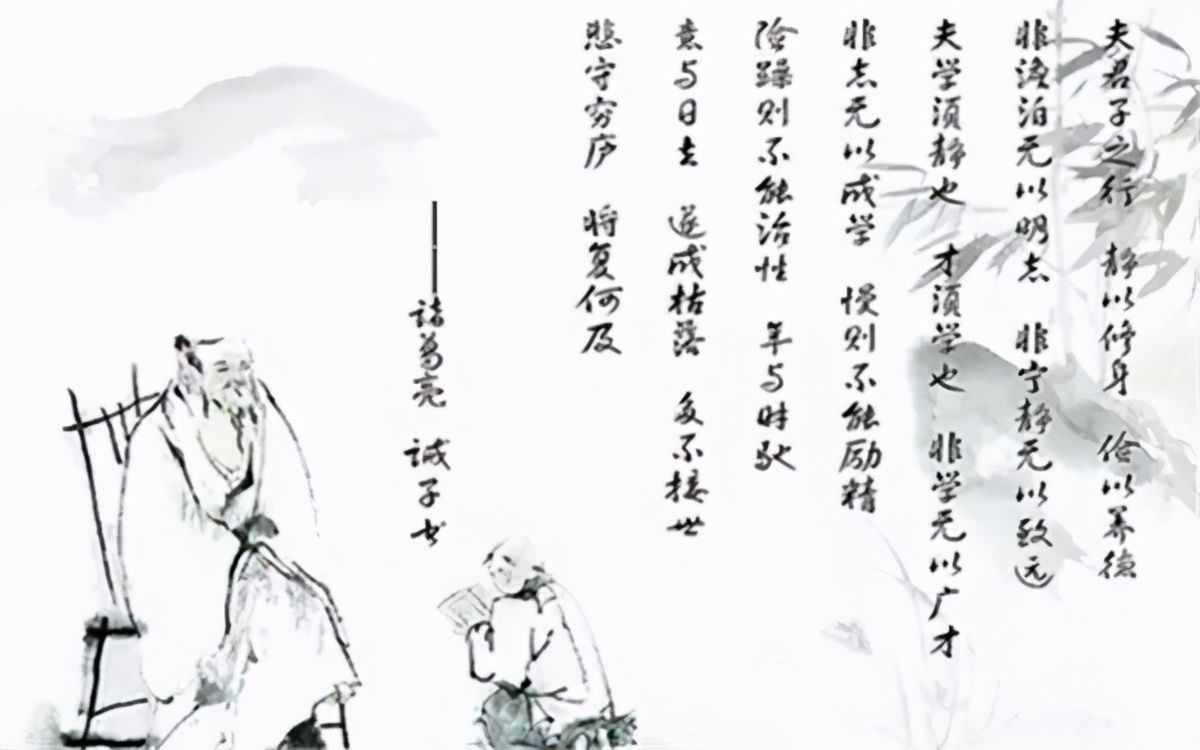 夫君子之行 静以修身 俭以养德
非淡泊无以明志 非宁静无以致远
夫学须静也 才须学也 非学无以广才
非志无以成学 慢则不能励精
险躁则不能治性 年与时驰
意与日去 遂成枯落 多不接世
悲守穷庐 将复何及
——诸葛亮 诫子书